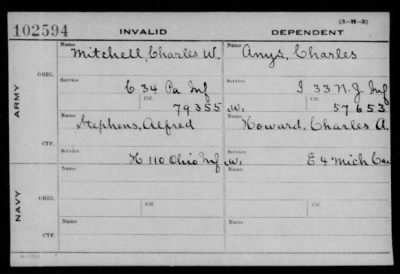 (3-H-3)
102594 INVALID DEPENDENT
Name Name
Mitchell, Charles W. Amys, Charles
ORIG.
Service Service
C 34 Pa Inf I 33 N.J. Inf
Ctf. Ctf.
79355 W. 57653
ARMY
Name Name
Stephens, Alfred Howard, Charles A.
CTF.
Service Service
H 110 Ohio Inf W. E 4 Mich Cav
Name Name
ORIG.
Ctf. Ctf.
NAVY
Name Name
CTF.